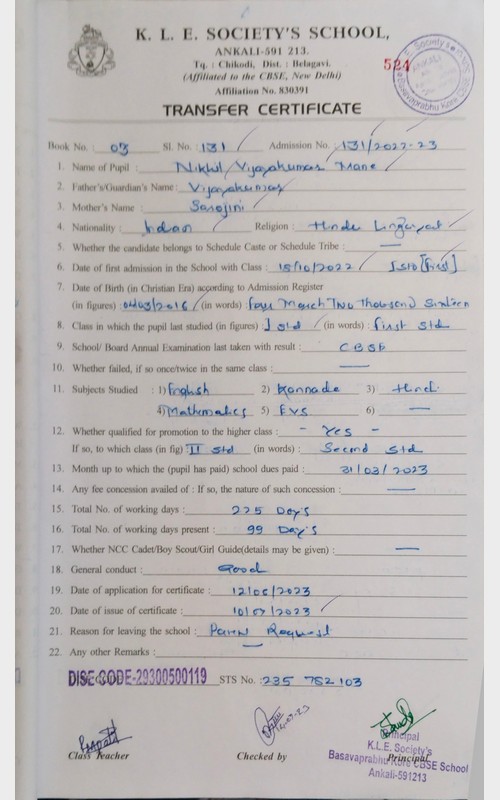 K. L. E. SOCIETY'S SCHOOL,
ANKALI-591 213.
Tq. : Chikodi, Dist. : Belagavi.
(Affiliated to the CBSE, New Delhi)
Affiliation No. 830391
524
TRANSFER CERTIFICATE
Book No. 03 Sl. No. : 131 Admission No. : 131/2022-23
1. Name of Pupil : Nikhil Vijayakumar Mane
2. Father's/Guardian's Name : Vijayakumar
3. Mother's Name : Sarojini
4. Nationality : Indian Religion : Hindu Lingayat
5. Whether the candidate belongs to Schedule Caste or Schedule Tribe : —
6. Date of first admission in the School with Class : 15/10/2022 I std [first]
7. Date of Birth (in Christian Era) according to Admission Register
(in figures) : 04/03/2016 (in words) : four March Two Thousend Sixteen
8. Class in which the pupil last studied (in figures) I std (in words) : first std
9. School/ Board Annual Examination last taken with result : CBSE
10. Whether failed, if so once/twice in the same class : —
11. Subjects Studied : 1) English 2) Kannada 3) Hindi
4) Mathematics 5) EVS 6) —
12. Whether qualified for promotion to the higher class : - Yes -
If so, to which class (in fig) : II std (in words) : Second std
13. Month up to which the (pupil has paid) school dues paid : 31/03/2023
14. Any fee concession availed of : If so, the nature of such concession : —
15. Total No. of working days : 225 Day's
16. Total No. of working days present : 99 Day's
17. Whether NCC Cadet/Boy Scout/Girl Guide(details may be given) : —
18. General conduct : Good
19. Date of application for certificate : 12/06/2023
20. Date of issue of certificate : 10/07/2023
21. Reason for leaving the school : Parent Request
22. Any other Remarks : —
DISE CODE-29300500119 STS No. : 235 782 103
Class Teacher Checked by Principal
Principal
K.L.E. Society's
Basavaprabhu Kore CBSE School
Ankali-591213